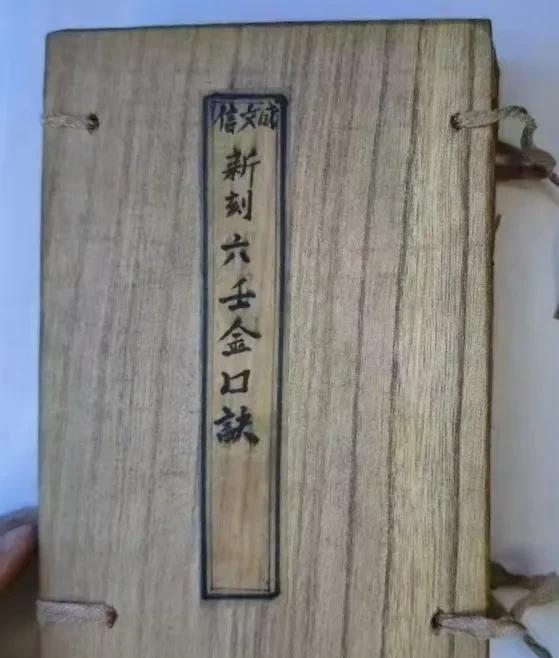 成文信
新刻六壬金口訣